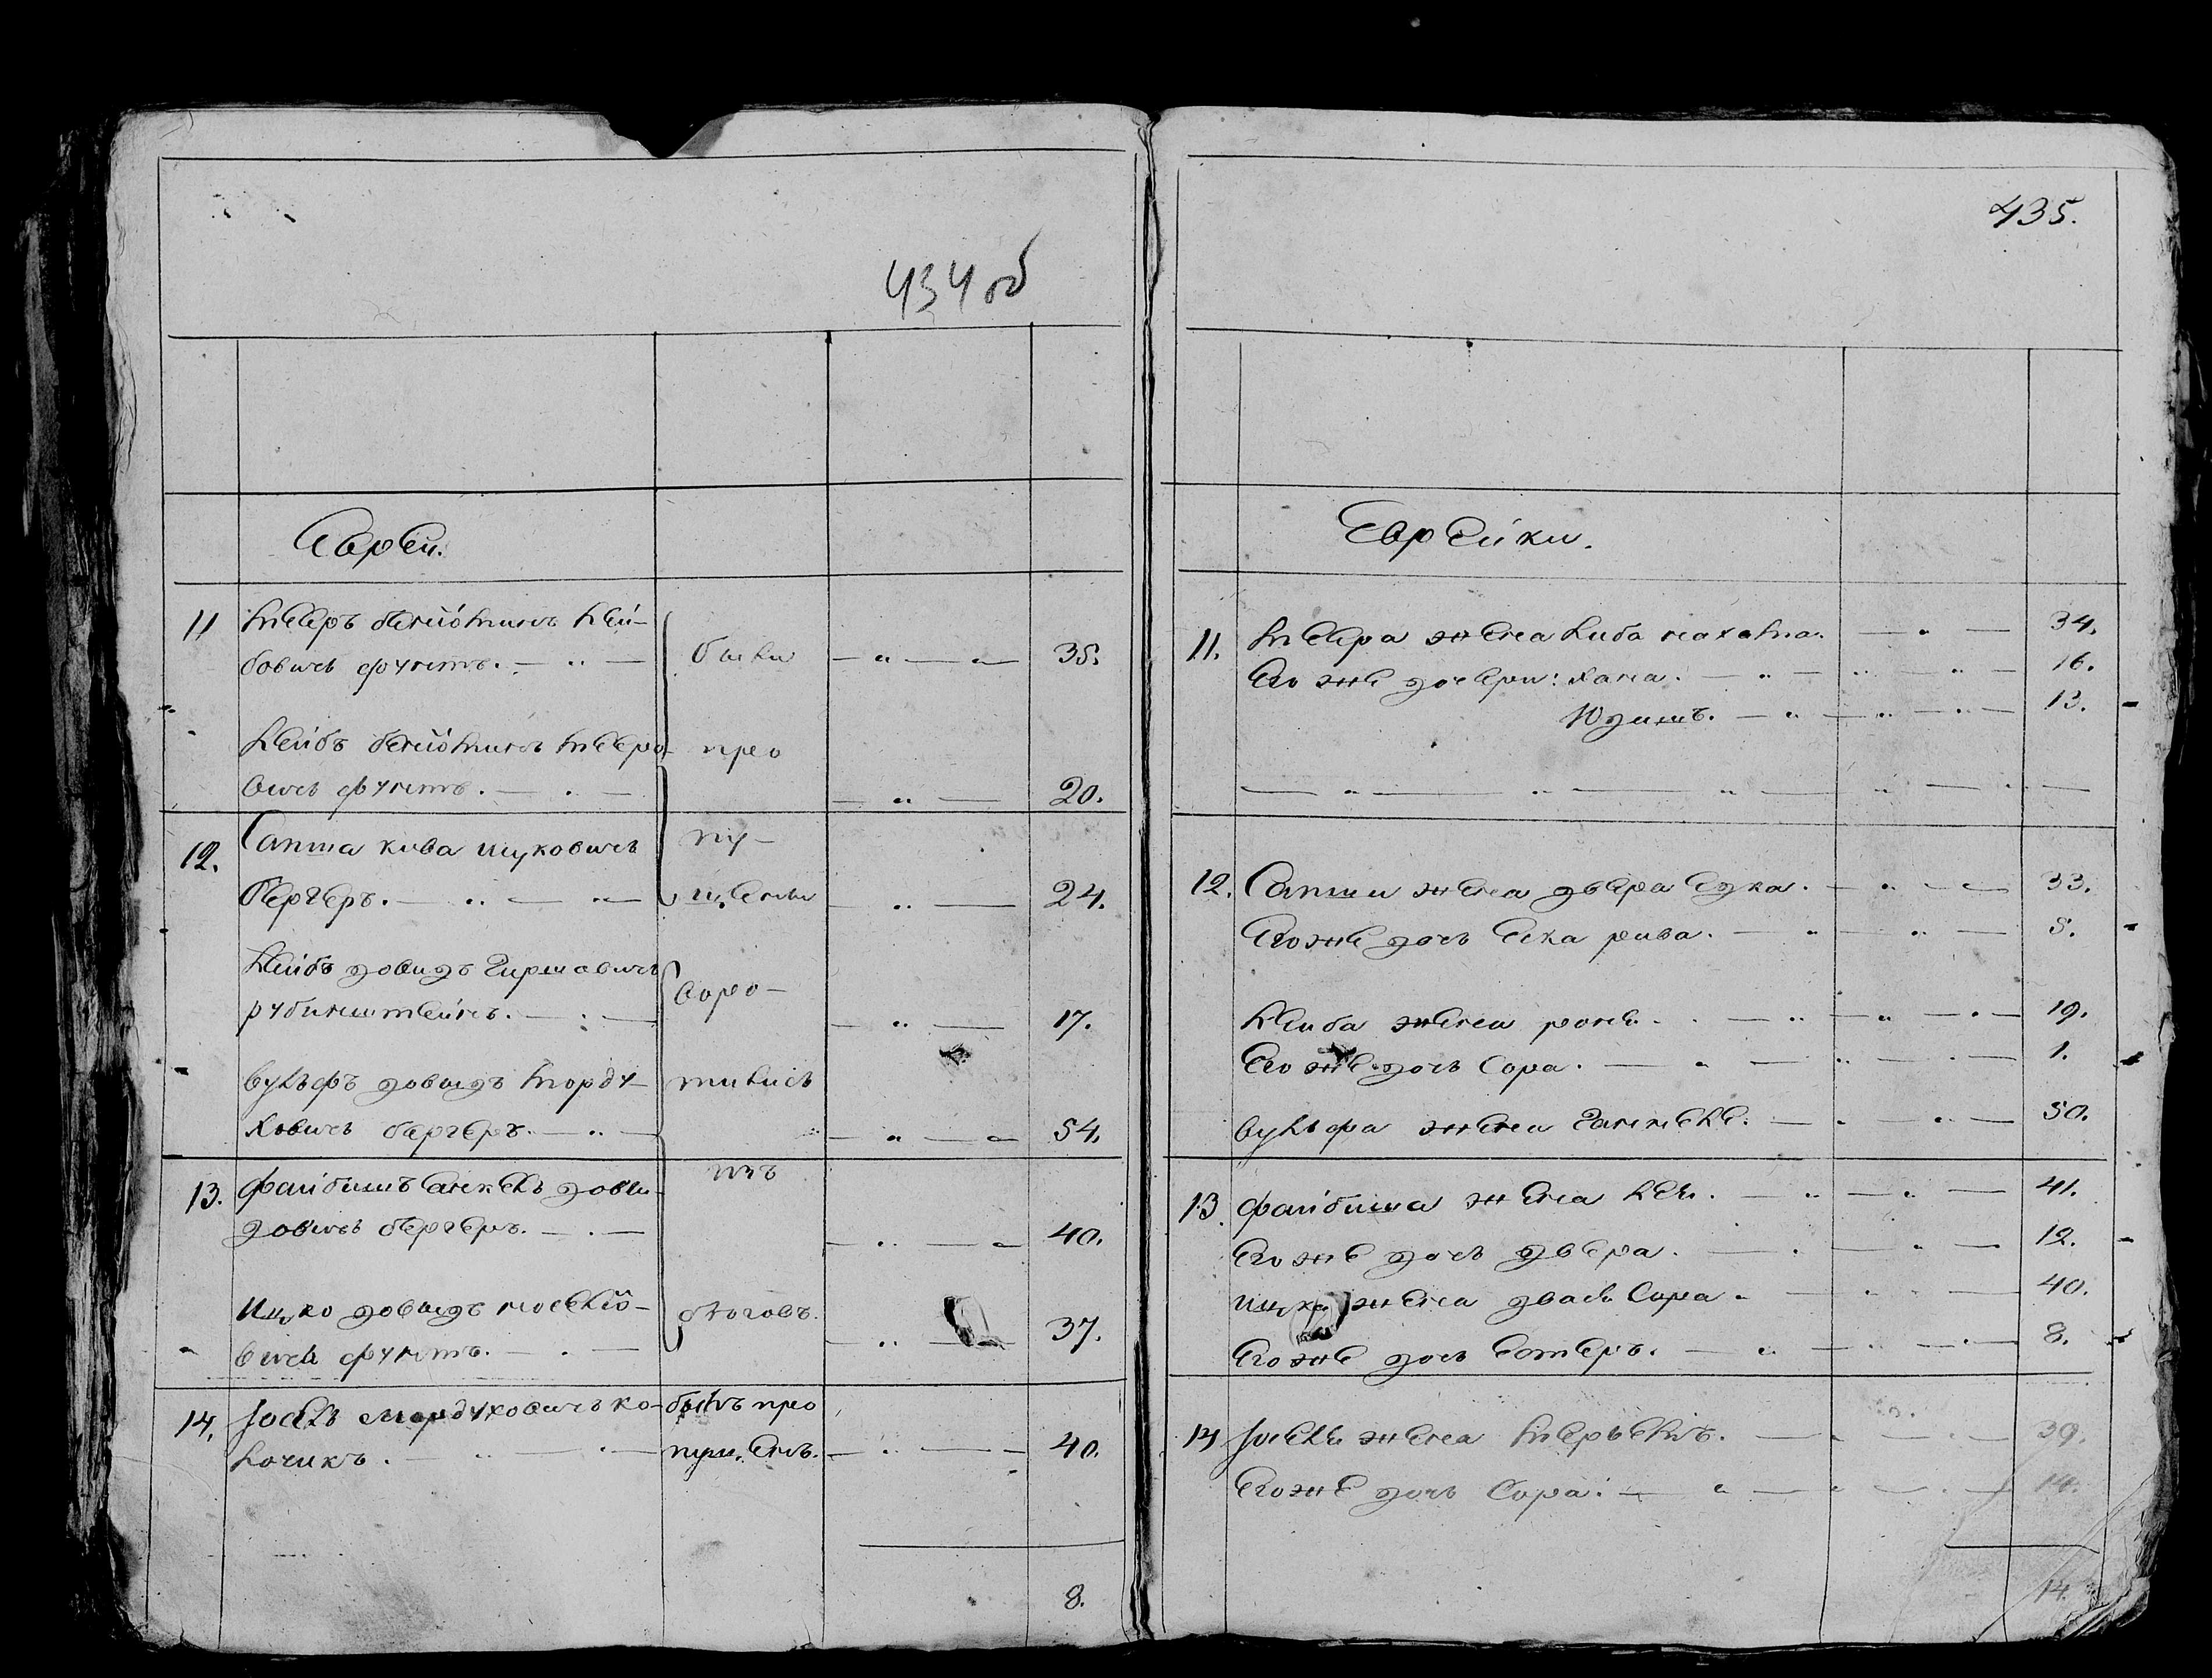 434 об
Евреи.
11 Мееръ беніоминъ Лей-
бовичъ фунтъ. были 35.
Лейбъ беніоминъ Мееро-
вичъ фунтъ. прео 20.
12. Сапша кива ицковичъ пу-
бергеръ. щены 24.
Лейбъ довидъ Гиршовичъ
рубинштейнъ. воро- 17.
вульфъ довидъ Морду- тились
ховичъ бергеръ. 54.
13. файбишъ янкель дови- изъ
довичъ бергеръ. 40.
Ицко довидъ іоселіо- бѣговъ.
вичъ фунтъ. 37.
14. Іосель Мордуховичъ ко- былъ про
лочикъ. пущенъ. 40.
8.
435.
Еврейки.
11. Меера жена Либа нахама. 34.
Его же дочери: Хана. 16.
Юдишъ. 13.
12. Сапши жена двера едка. 33.
Егоже дочь ента рива. 5.
Лейба жена роня. 19.
Его же дочь Сора. 1.
вульфа жена Ганнеле. 50.
13. файбиша жена Лея. 41.
Егоже дочь двера. 12.
ицка жена двася Сора 40.
Егоже дочь естеръ. 8.
14 Іоселя жена Мерьемъ. 39.
Егоже дочь Сора. 14.
14.